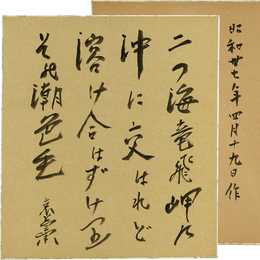 二つ海竜飛岬の
沖に交はれど
溶け合はずけり
その潮色を
昭和卅七年四月十九日作